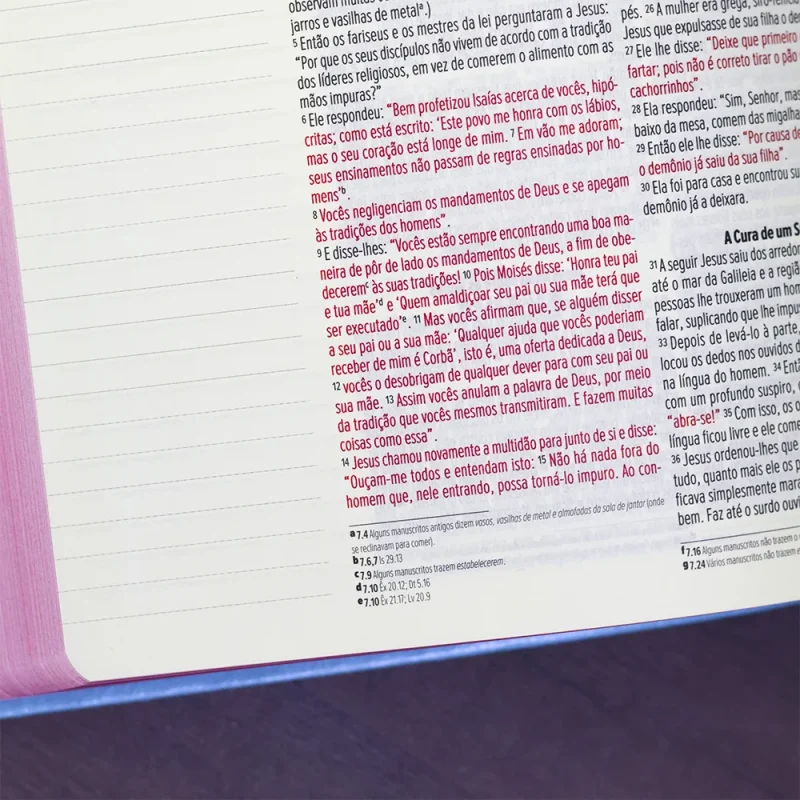 observam muitas
jarros e vasilhas de metalᵃ.)
⁵ Então os fariseus e os mestres da lei perguntaram a Jesus:
“Por que os seus discípulos não vivem de acordo com a tradição
dos líderes religiosos, em vez de comerem o alimento com as
mãos impuras?”
⁶ Ele respondeu: “Bem profetizou Isaías acerca de vocês, hipó-
critas; como está escrito: ‘Este povo me honra com os lábios,
mas o seu coração está longe de mim. ⁷ Em vão me adoram;
seus ensinamentos não passam de regras ensinadas por ho-
mens’ᵇ.
⁸ Vocês negligenciam os mandamentos de Deus e se apegam
às tradições dos homens”.
⁹ E disse-lhes: “Vocês estão sempre encontrando uma boa ma-
neira de pôr de lado os mandamentos de Deus, a fim de obe-
deceremᶜ às suas tradições! ¹⁰ Pois Moisés disse: ‘Honra teu pai
e tua mãe’ᵈ e ‘Quem amaldiçoar seu pai ou sua mãe terá que
ser executado’ᵉ. ¹¹ Mas vocês afirmam que, se alguém disser
a seu pai ou a sua mãe: ‘Qualquer ajuda que vocês poderiam
receber de mim é Corbã’, isto é, uma oferta dedicada a Deus,
¹² vocês o desobrigam de qualquer dever para com seu pai ou
sua mãe. ¹³ Assim vocês anulam a palavra de Deus, por meio
da tradição que vocês mesmos transmitiram. E fazem muitas
coisas como essa”.
¹⁴ Jesus chamou novamente a multidão para junto de si e disse:
“Ouçam-me todos e entendam isto: ¹⁵ Não há nada fora do
homem que, nele entrando, possa torná-lo impuro. Ao con-
a 7.4 Alguns manuscritos antigos dizem vasos, vasilhas de metal e almofadas da sala de jantar (onde
se reclinavam para comer).
b 7.6,7 Is 29.13
c 7.9 Alguns manuscritos trazem estabelecerem.
d 7.10 Êx 20.12; Dt 5.16
e 7.10 Êx 21.17; Lv 20.9
pés. ²⁶ A mulher era grega,
Jesus que expulsasse de sua filha o
²⁷ Ele lhe disse: “Deixe que primeiro
fartar; pois não é correto tirar o pão
cachorrinhos”.
²⁸ Ela respondeu: “Sim, Senhor, mas
baixo da mesa, comem das migalha
²⁹ Então ele lhe disse: “Por causa de
o demônio já saiu da sua filha”.
³⁰ Ela foi para casa e encontrou su
demônio já a deixara.
A Cura de um S
³¹ A seguir Jesus saiu dos arredor
até o mar da Galileia e a regiã
pessoas lhe trouxeram um hom
falar, suplicando que lhe impu
³³ Depois de levá-lo à parte,
locou os dedos nos ouvidos d
na língua do homem. ³⁴ Ent
com um profundo suspiro,
“abra-se!” ³⁵ Com isso, os o
língua ficou livre e ele come
³⁶ Jesus ordenou-lhes que
tudo, quanto mais ele os p
ficava simplesmente mara
bem. Faz até o surdo ouvi
f 7.16 Alguns manuscritos não trazem o
g 7.24 Vários manuscritos não trazem e